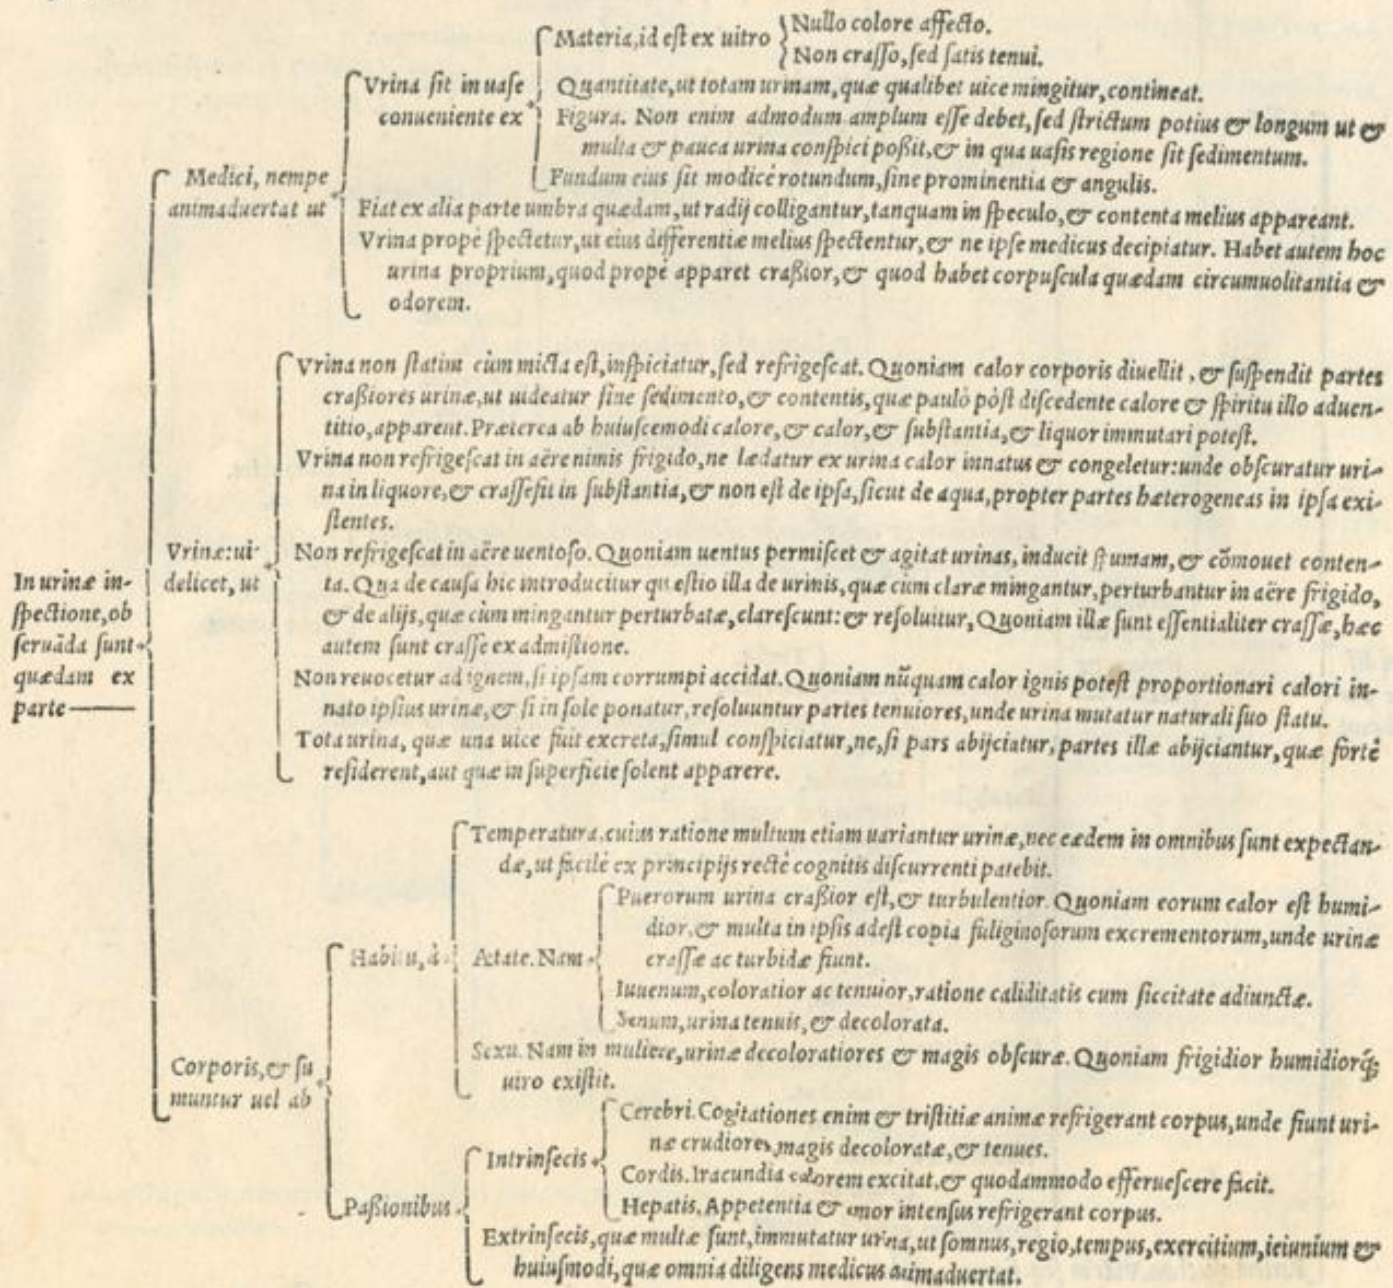 Materia, id est ex uitro
Nullo colore affecto.
Non crasso, sed satis tenui.
Vrina sit in uase
conueniente ex
Quantitate, ut totam urinam, quæ qualibet uice mingitur, contineat.
Figura. Non enim admodum amplum esse debet, sed strictum potius & longum ut &
multa & pauca urina conspici poßit, & in qua uasis regione sit sedimentum.
Fundum eius sit modicè rotundum, sine prominentia & angulis.
Medici, nempe
animaduertat ut
Fiat ex alia parte umbra quædam, ut radij colligantur, tanquam in speculo, & contenta melius appareant.
Vrina propè spectetur, ut eius differentiæ melius spectentur, & ne ipse medicus decipiatur. Habet autem hoc
urina proprium, quod propè apparet craßior, & quod habet corpuscula quædam circumuolitantia &
odorem.
Vrina non statim cùm micta est, inspiciatur, sed refrigescat. Quoniam calor corporis diuellit, & suspendit partes
craßiores urinæ, ut uideatur sine sedimento, & contentis, quæ paulò pòst discedente calore & spiritu illo aduen-
titio, apparent. Præterea ab huiuscemodi calore, & calor, & substantia, & liquor immutari potest.
Vrina non refrigescat in aëre nimis frigido, ne lædatur ex urina calor innatus & congeletur: unde obscuratur uri-
na in liquore, & crassefit in substantia, & non est de ipsa, sicut de aqua, propter partes hæterogeneas in ipsa exi-
stentes.
Vrinæ: ui-
delicet, ut
Non refrigescat in aëre uentoso. Quoniam uentus permiscet & agitat urinas, inducit spumam, & cõmouet conten-
ta. Qua de causa hic introducitur quæstio illa de urinis, quæ cùm claræ mingantur, perturbantur in aëre frigido,
& de alijs, quæ cùm mingantur perturbatæ, clarescunt: & resoluitur, Quoniam illæ sunt essentialiter crassæ, hæc
autem sunt crasse ex admistione.
Non reuocetur ad ignem, si ipsam corrumpi accidat. Quoniam nũquam calor ignis potest proportionari calori in-
nato ipsius urinæ, & si in sole ponatur, resoluuntur partes tenuiores, unde urina mutatur naturali suo statu.
Tota urina, quæ una uice fuit excreta, simul conspiciatur, ne, si pars abijciatur, partes illæ abijciantur, quæ fortè
residerent, aut quæ in superficie solent apparere.
In urinæ in-
spectione, ob
seruãda sunt
quædam ex
parte
Temperatura, cuius ratione multum etiam uariantur urinæ, nec eædem in omnibus sunt expectan-
dæ, ut facilè ex principijs rectè cognitis discurrenti patebit.
Habitu, à
Ætate. Nam
Puerorum urina craßior est, & turbulentior. Quoniam eorum calor est humi-
dior, & multa in ipsis adest copia fuliginosorum excrementorum, unde urinæ
crassæ ac turbidæ fiunt.
Iuuenum, coloratior ac tenuior, ratione caliditatis cum siccitate adiunctæ.
Senum, urina tenuis, & decolorata.
Sexu. Nam in muliere, urinæ decoloratiores & magis obscuræ. Quoniam frigidior humidiorq́;
uiro existit.
Corporis, & su
muntur uel ab
Paßionibus
Intrinsecis
Cerebri. Cogitationes enim & tristitiæ animæ refrigerant corpus, unde fiunt uri-
næ crudiores, magis decoloratæ, & tenues.
Cordis. Iracundia calorem excitat, & quodammodo efferuescere facit.
Hepatis. Appetentia & amor intensus refrigerant corpus.
Extrinsecis, quæ multæ sunt, immutatur urina, ut somnus, regio, tempus, exercitium, ieiunium &
huiusmodi, quæ omnia diligens medicus animaduertat.